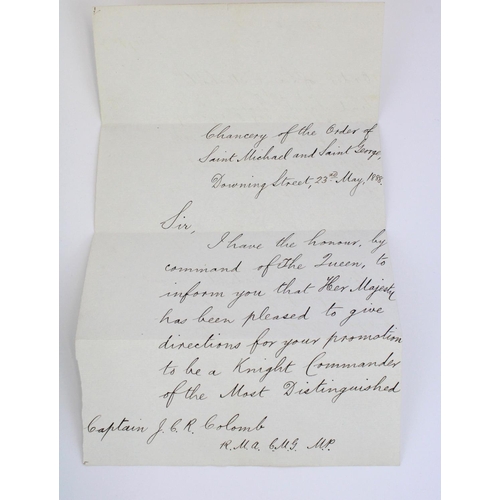 Chancery of the Order of
Saint Michael and Saint George,
Downing Street, 23rd May, 1888.
Sir,
I have the honour, by
command of The Queen, to
inform you that Her Majesty
has been pleased to give
directions for your promotion
to be a Knight Commander
of the Most Distinguished
Captain J. C. R. Colomb
R.M.A. C.M.G. M.P.